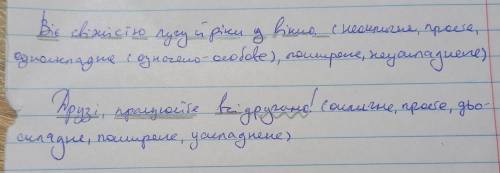 Віє свіжістю лугу й ріки у вікно (неоклична, просте,
односкладне (означено-особове), поширене, неускладнене)
Друзі, працюйте всі дружно! (оклична, просте, дво-
складне, поширене, ускладнене)